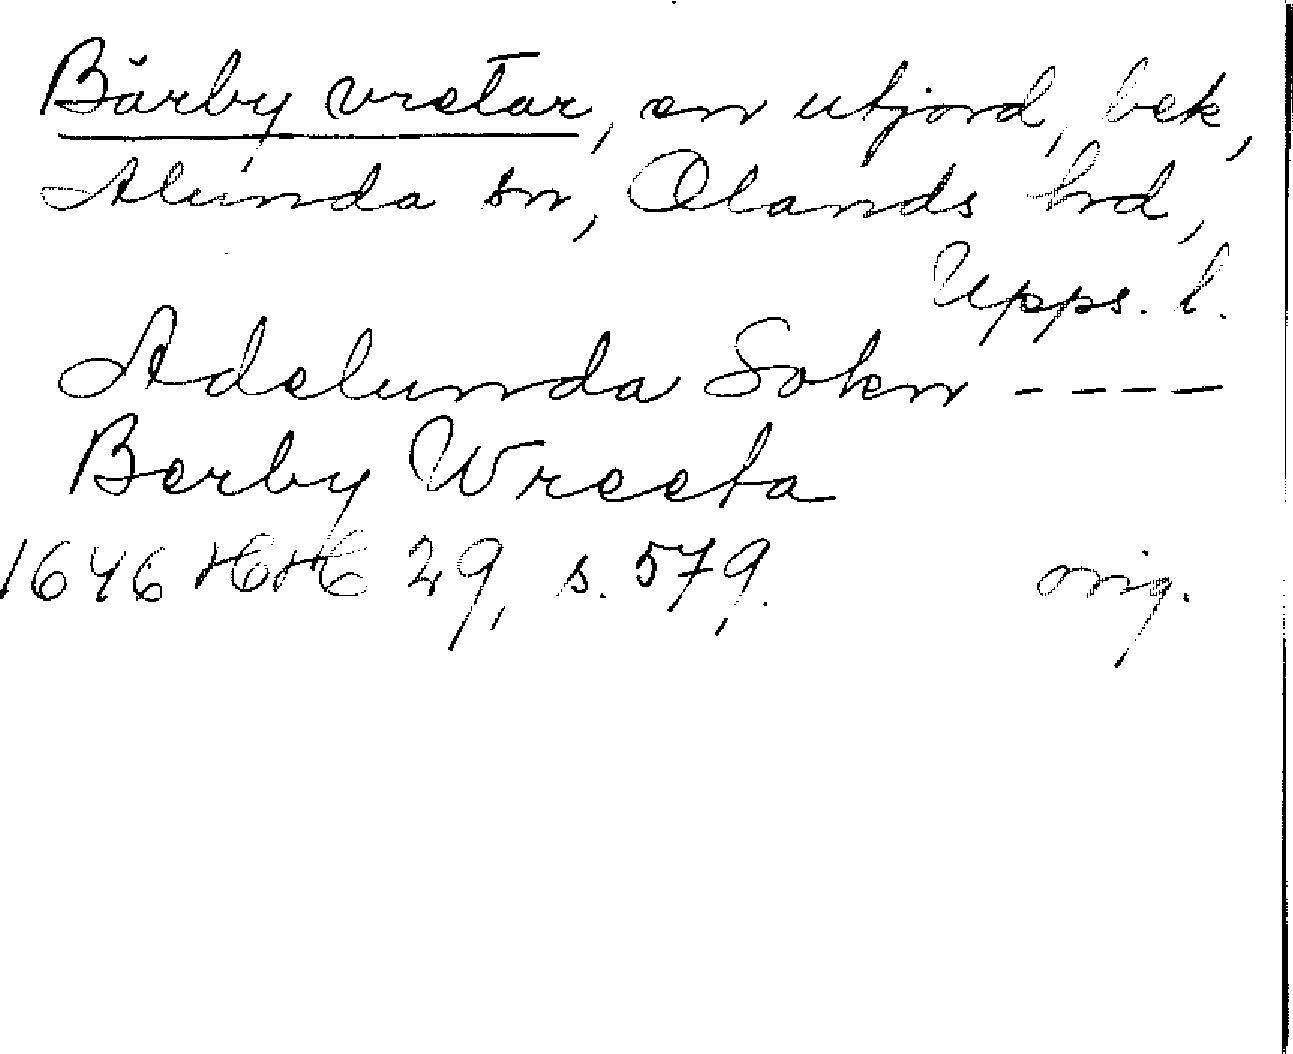 Bärby vretar, en utjord, bek,
Alunda sn, Olands hrd,
Upps. l.
Adelunda Sokn ----
Berby Wreeta
1646 HH 29, s. 579.
orig.